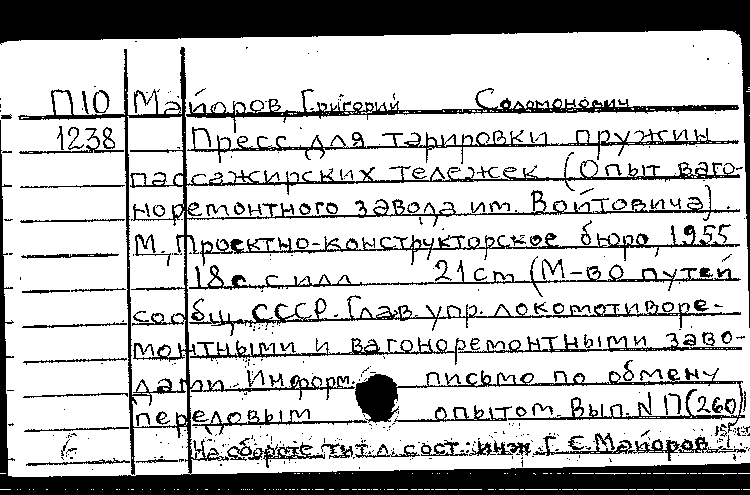 П10 Майоров, Григорий Соломонович
1238 Пресс для тарировки пружин
пассажирских тележек (Опыт ваго-
норемонтного завода им. Войтовича).
М., Проектно-конструкторское бюро, 1955
18 с. с илл. 21 cm (М-во путей
сообщ. СССР. Глав. упр. локомотиворе-
монтными и вагоноремонтными заво-
дами. Информ. письмо по обмену
передовым опытом. Вып. N П(260)
На обороте тит. л. сост.: инж. Г. С. Майоров